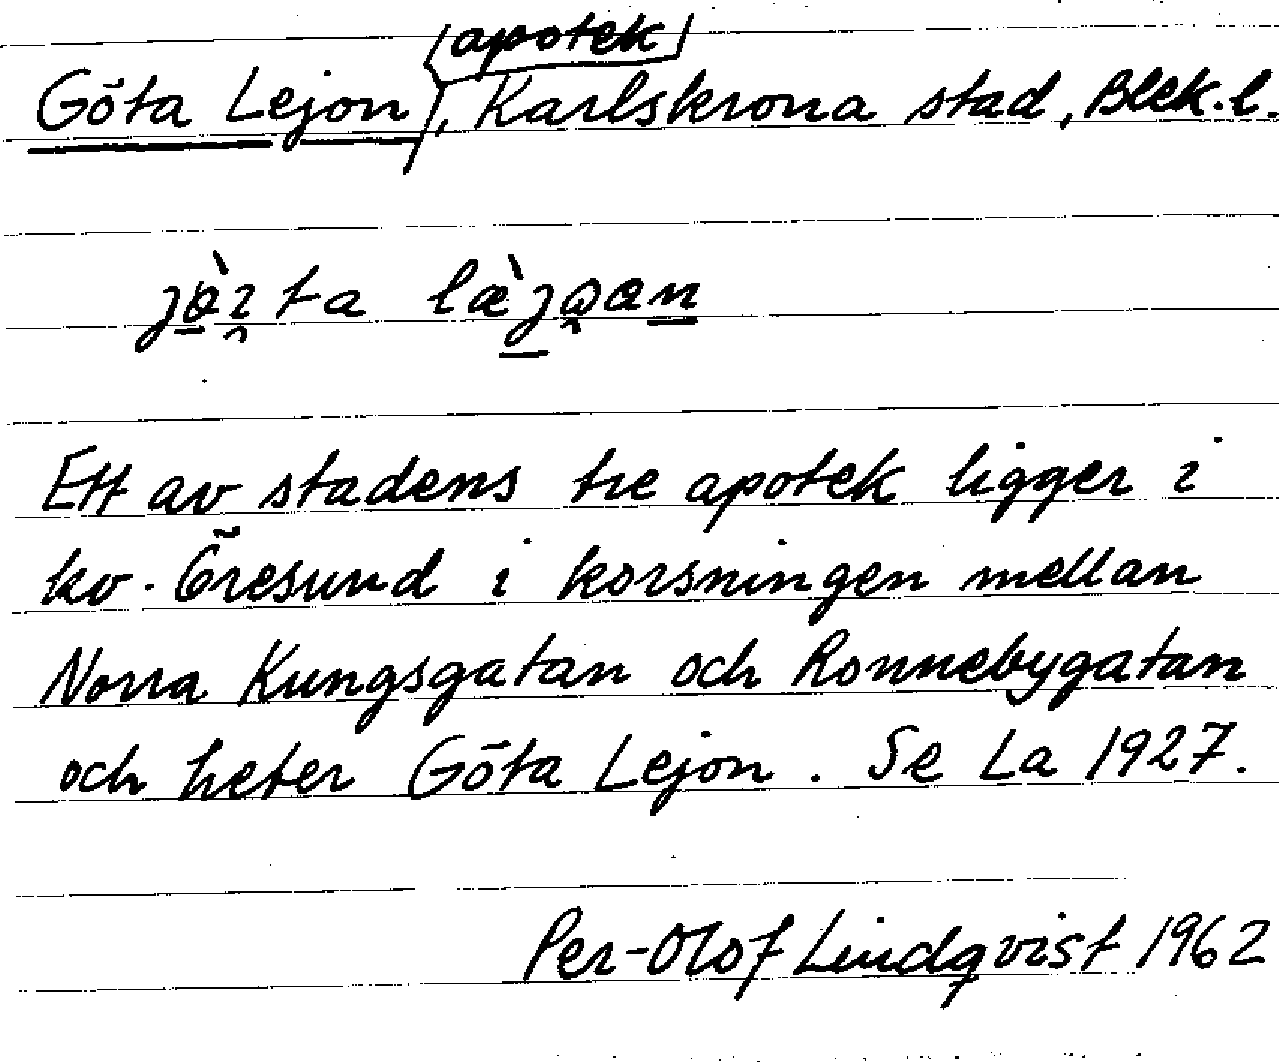 apotek
Göta Lejon, Karlskrona stad, Blek.l.
Ett av stadens tre apotek ligger i
kv. Öresund i korsningen mellan
Norra Kungsgatan och Ronnebygatan
och heter Göta Lejon. Se La 1927.
Per-Olof Lindqvist 1962